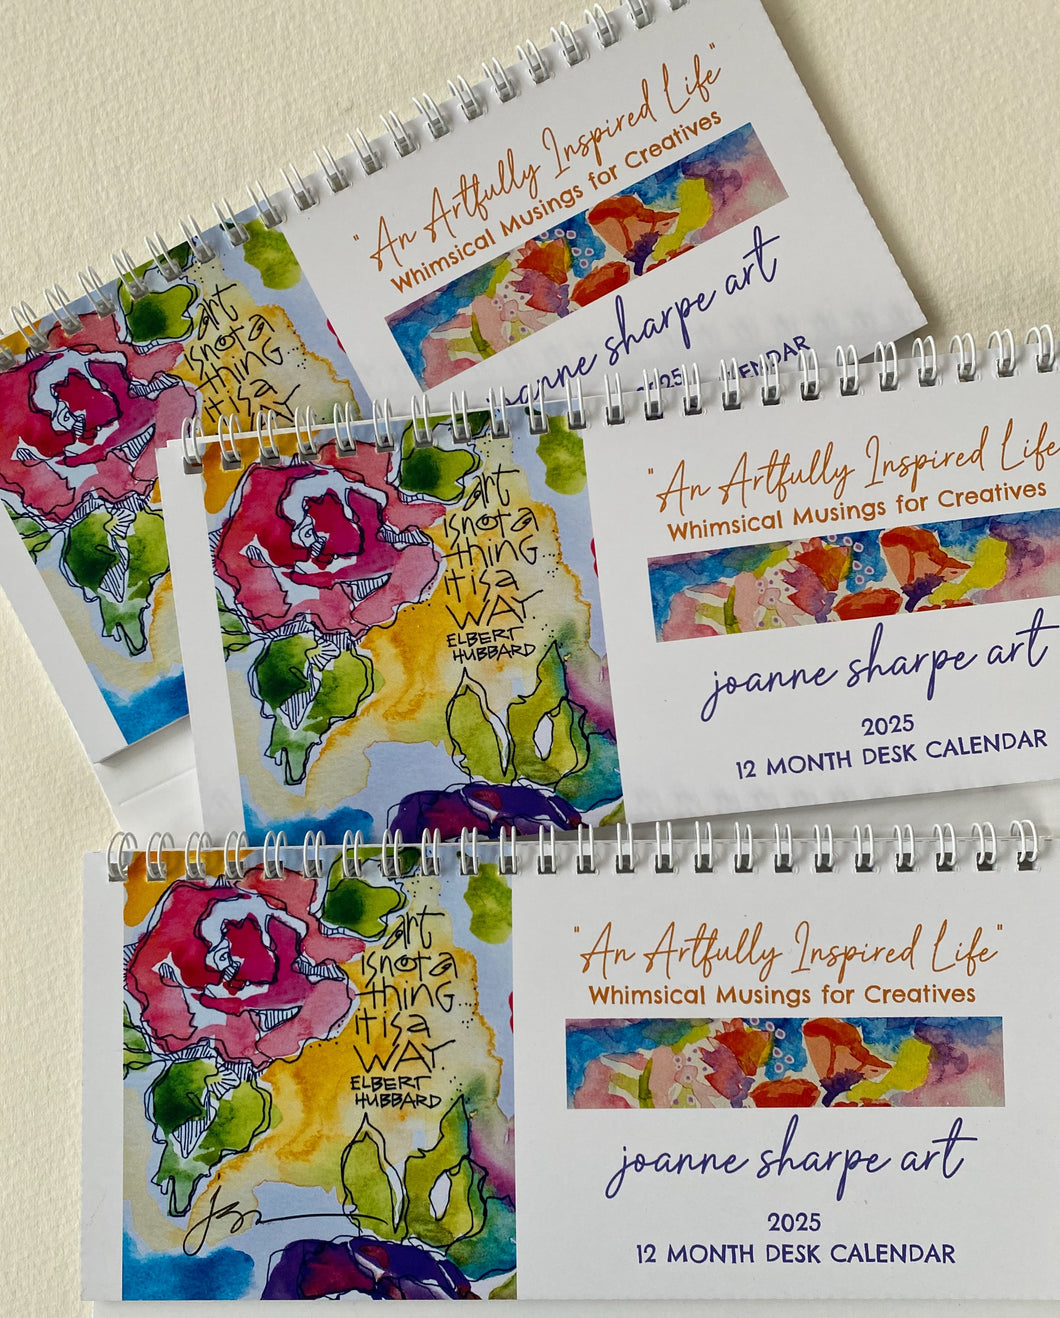 "An Artfully Inspired Life"
Whimsical Musings for Creatives
joanne sharpe art
2025
ENDAR
art
is not a
thing...
it is a
WAY
"An Artfully Inspired Life
Whimsical Musings for Creatives
joanne sharpe art
2025
12 MONTH DESK CALENDAR
art
is not a
thing
it is a
WAY.
ELBERT
HUBBARD
"An Artfully Inspired Life"
Whimsical Musings for Creatives
joanne sharpe art
2025
12 MONTH DESK CALENDAR
art
is not a
thing...
it is a
WAY.
ELBERT
HUBBARD